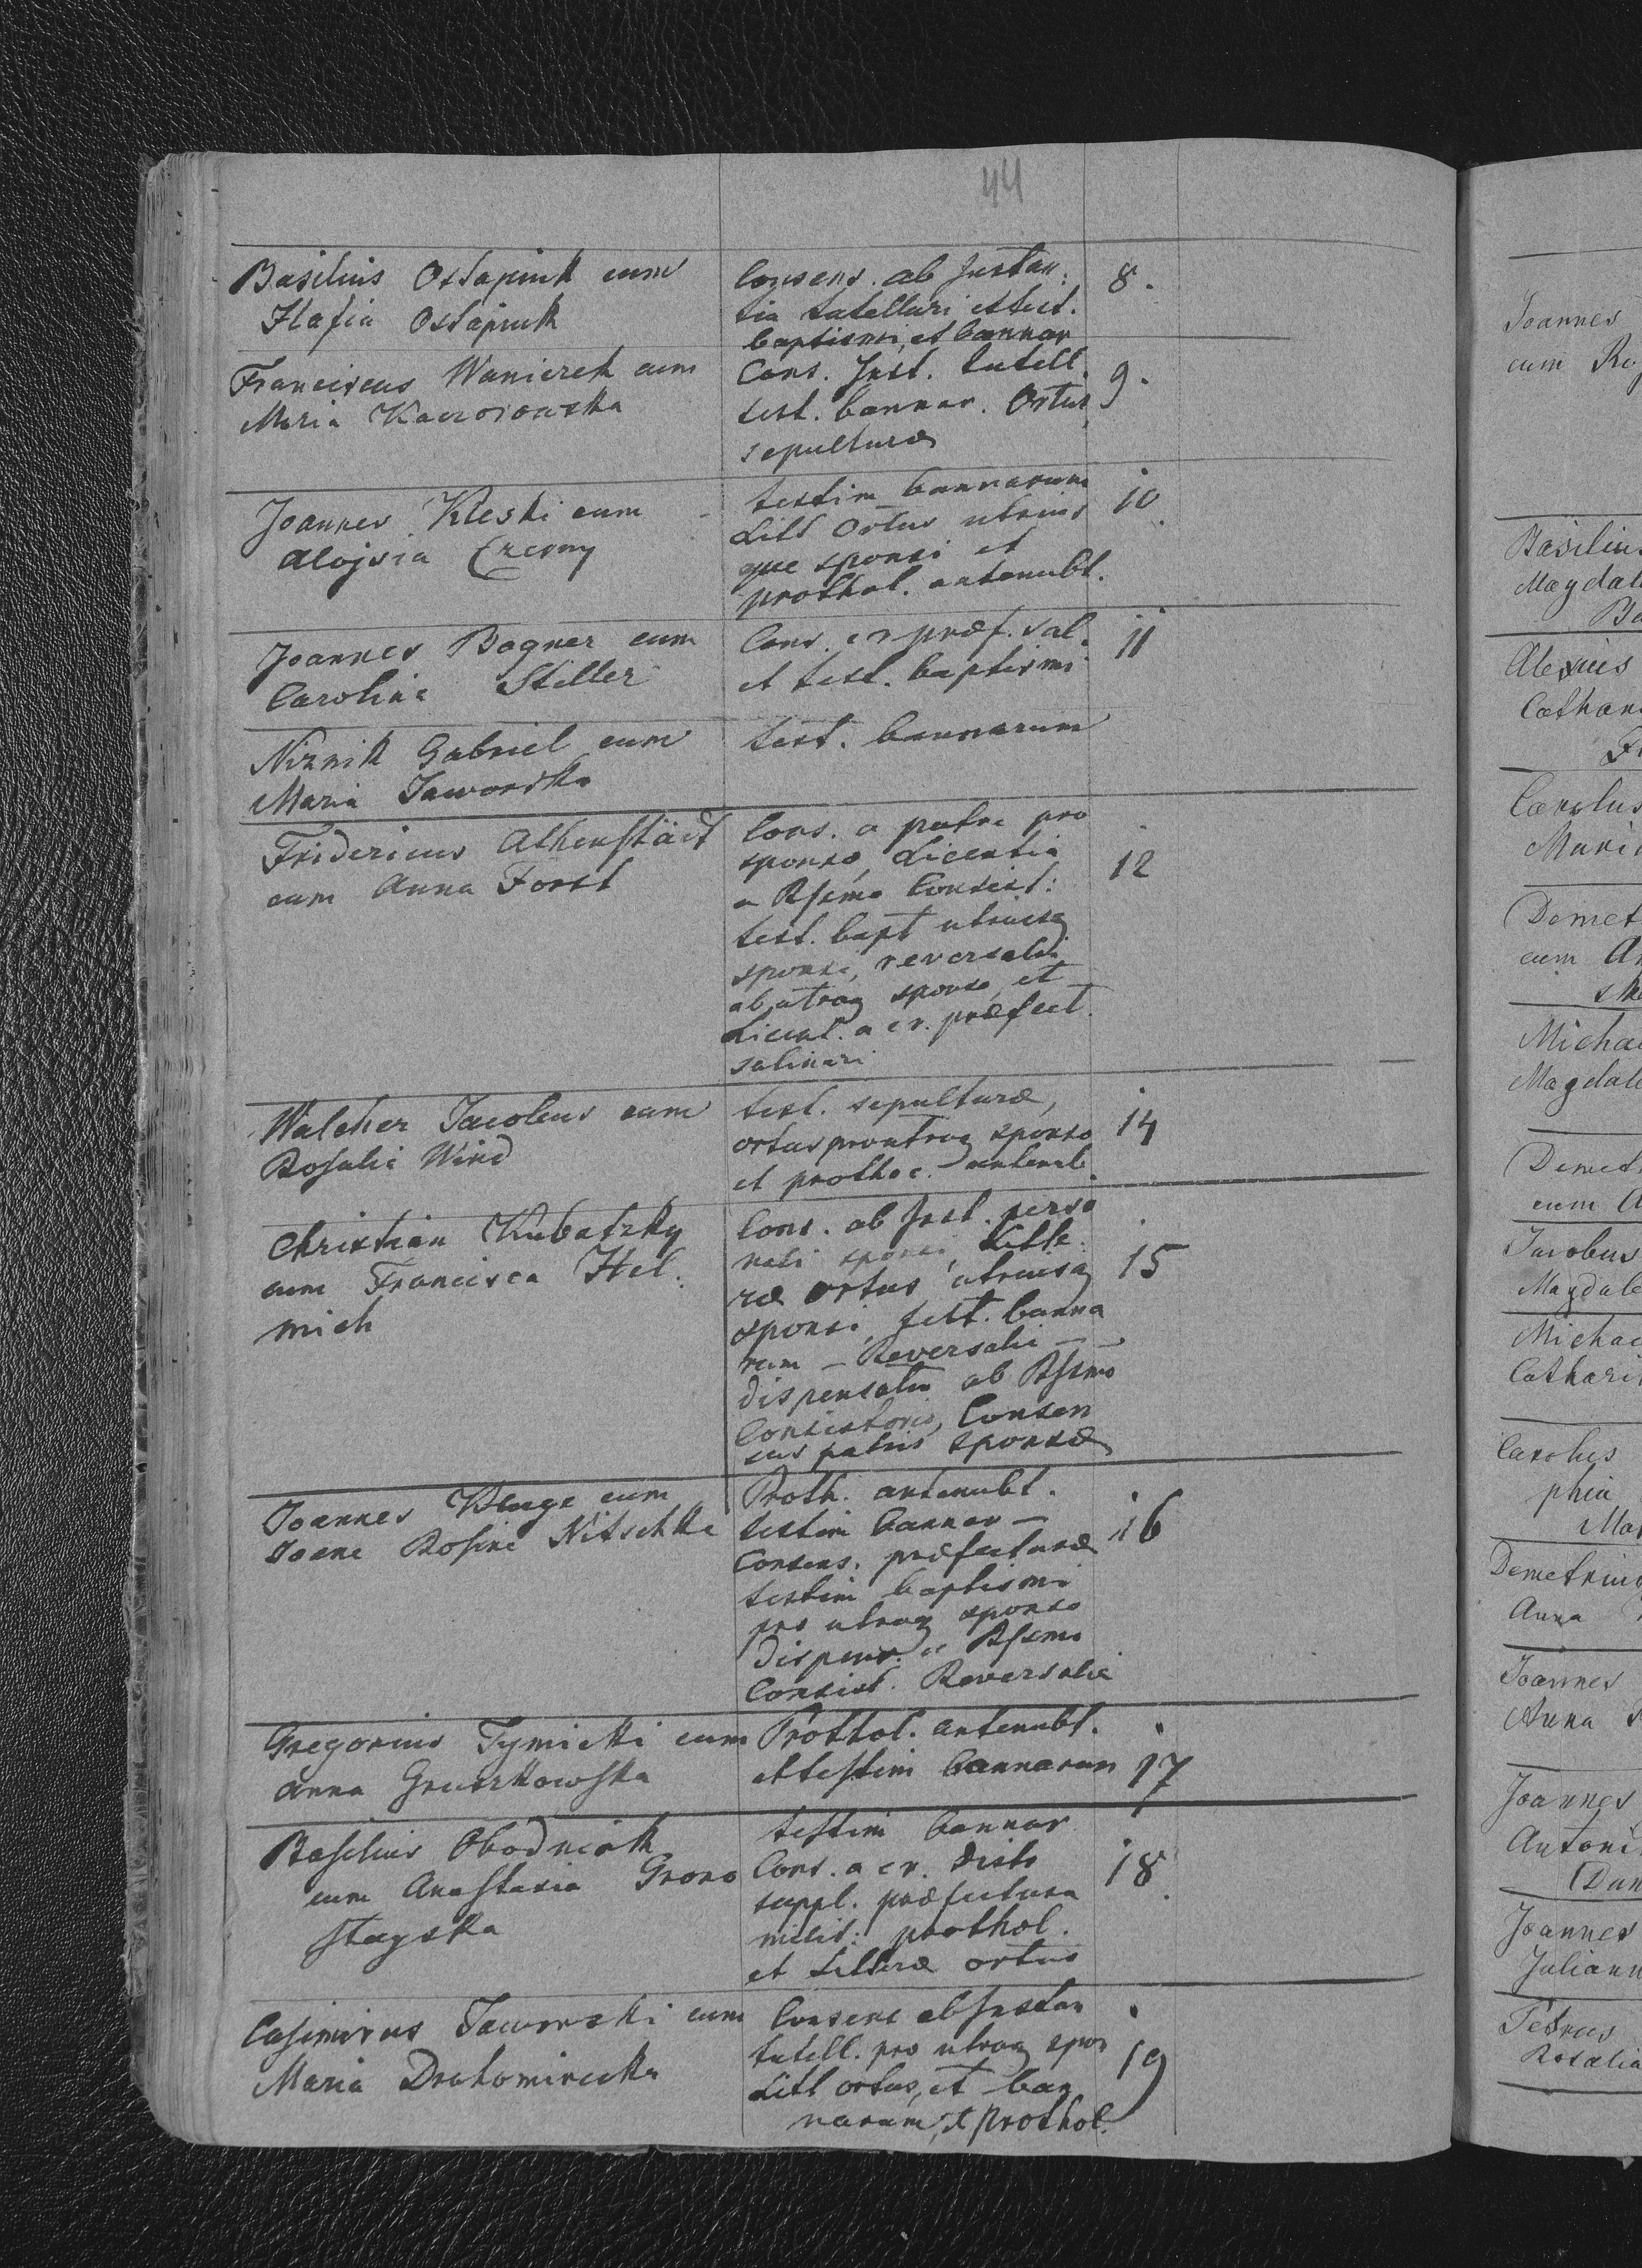 44
Basilius Ostapiuk cum
Hafia Ostapiuk
Consens. ab Instan.
tia tutellari et test.
baptismi, et bannar
8.
Franciscus Wanierek cum
Maria Kaczorowska
Cons. Inst. tutell.
test. bannar. Ortus,
sepulturæ
9.
Joannes Kleski cum
Alojsia Czerny
testim bannarum
Litt Ortus utrius
que sponsi et
prothol. antenubt.
10
Joannes Bogner cum
Carolina Stiller
Cons. cr præf. sal.
et test. baptismi
11
Niznik Gabriel cum
Maria Jaworska
test. bannarum
Fridericus Athenstädt
cum Anna Forst
Cons. a patre pro
sponso, Licentia
a Rssmo Consist:
test. bapt utriusq
sponsi, reversales
ab utroq sponso, et
Licent. a cr. præfect.
salinari
12
Walcher Jacobus cum
Rosalia Wind
test. sepulturæ,
ortus pro utroq sponso
et prothoc. antenub
14
Christian Kubatzky
cum Francisca Hel.
mich
Cons. ab Inst. perso
nali sponsi, Litte
ræ Ortus utriusq
sponsi, test. banna
rum – Reversalis –
dispensatio ab Rssmo
Consistorio, Consen
sus patris sponsæ
15
Joannes Kluge cum
Joana Rosina Nitschke
Proth. antenubt.
testim bannar –
Consens. præfecturæ
testim baptismi
pro utroq sponso
dispens. a Rssmo
Consist. Reversalis
16
Gregorius Tymicki cum
Anna Gruszkowska
Prothol. antenubt.
et testim bannarum
17
Basilius Obodniak
cum Anastasia Grono
stayska
testim bannar
Cons. a cr. disto
suppl. præfectura
milit: prothol.
et Litteræ ortus
18
Casimirus Jaworski cum
Maria Drohomirecka
Consens ab Instan
tutell. pro utroq spon
Litt ortus, et ban
narum, et prothol.
19
Joannes
cum
Basilius
Magdal
Alexius
Carolus
Demet
cum
Michae
Magdale
Demet
cum
Jacobus
Magdale
Michae
Cathari
Carolus
phia
Demetrius
Anna
Joannes
Anna
Joannes
Antoni
Joannes
Juliann
Petrus
Rosalia